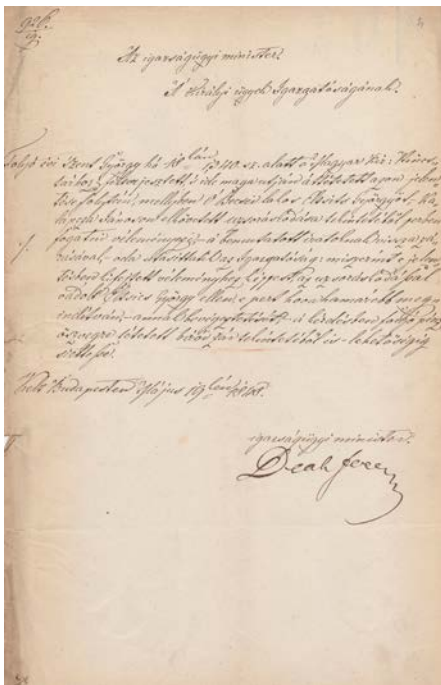 926.
ig.
Az igazságügyi minister.
A Királyi ügyek Igazgatóságának.
Folyó évi Szent György hó 18kán 1340. sz. alatt a Magyar Kir: Kincs-
tárhoz és ide maga utján áttétetett azon jelen-
tése folytán, mellyben Ó Becsei lakos György
Jánoson elkövetett uzsoráskodása tekintetéből perbe
véleményezi, – a bemutatott iratoknak vissza zá-
rásával – oda utasittatik Az Igazgatóság: miszerint a jelen-
tésben kifejtett véleményhez képest az uzsoráskodásból
György ellen a pert hova hamarabb meg-
inditván, – annak bevégeztetését a kérdésben
összegre tétetett birói zár tekintetéből is – lehetőségig
siettesse.
Kelt Budapesten Május 19kén 1848.
igazságügyi minister.
Deák Ferencz